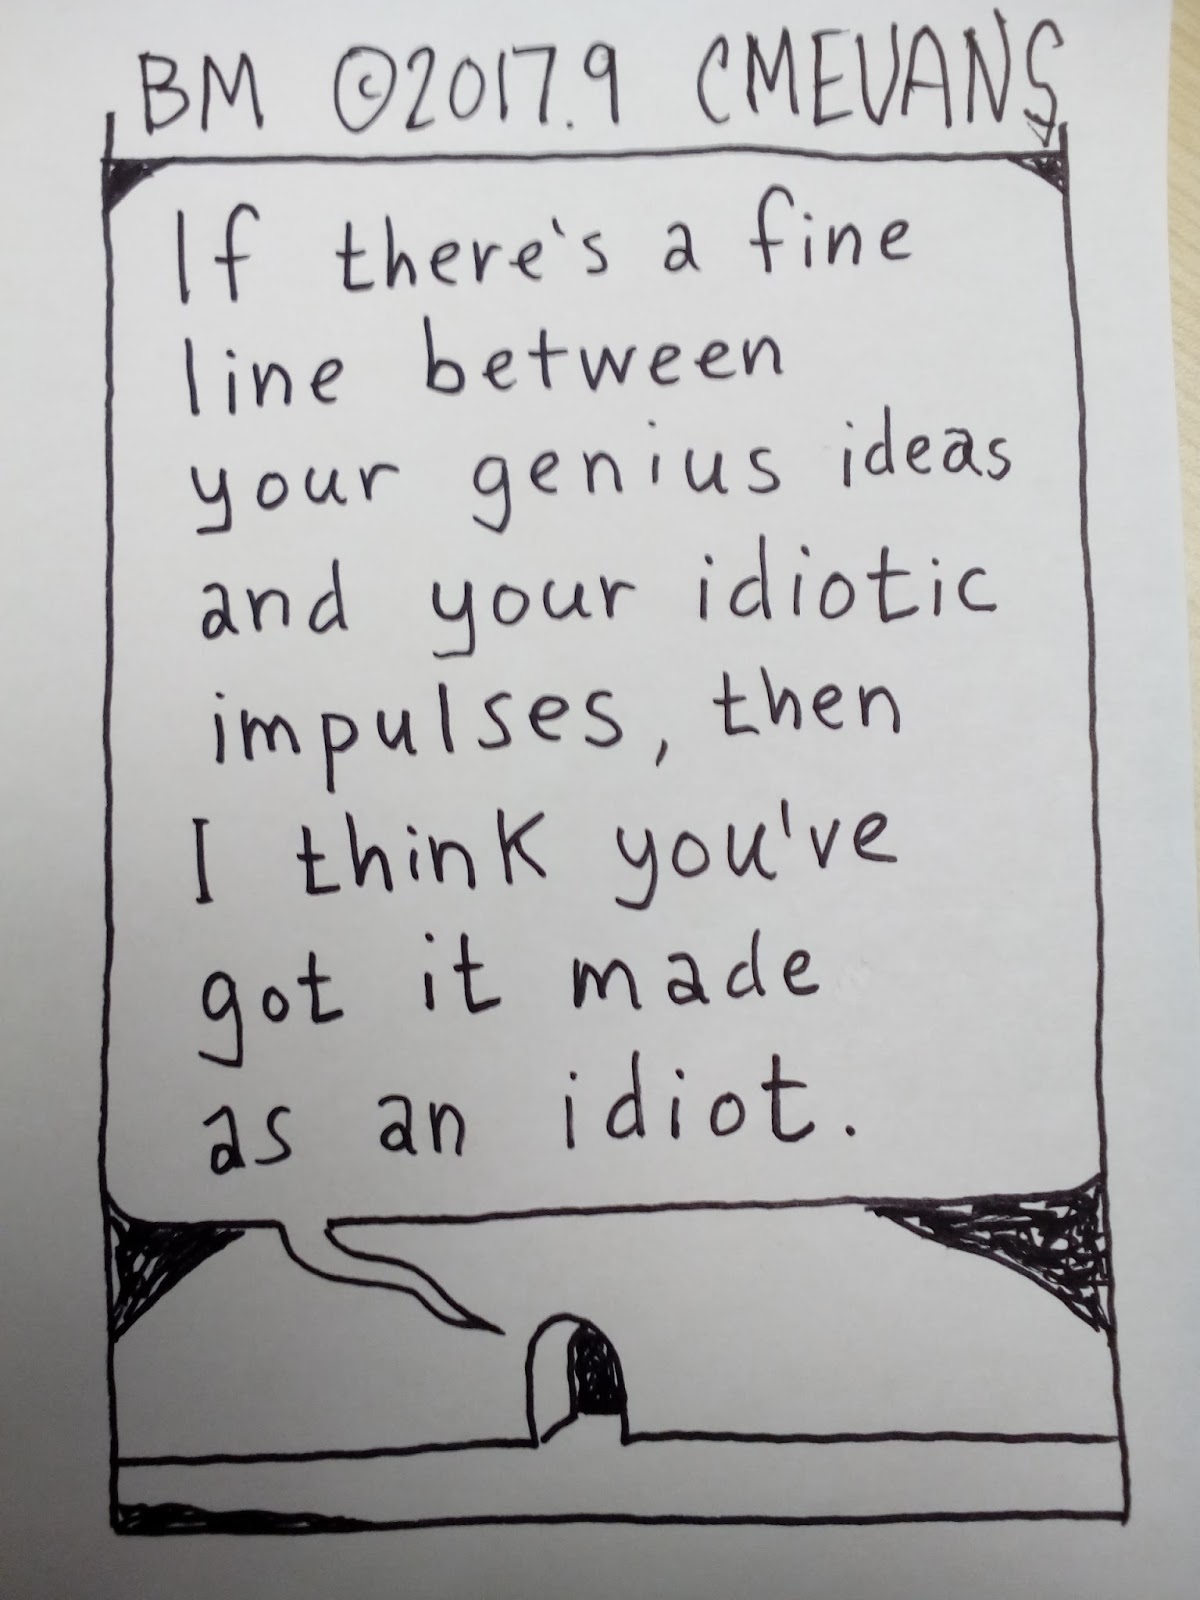 BM ©2017.9 CMEVANS
If there's a fine
line between
your genius ideas
and your idiotic
impulses, then
I think you've
got it made
as an idiot.